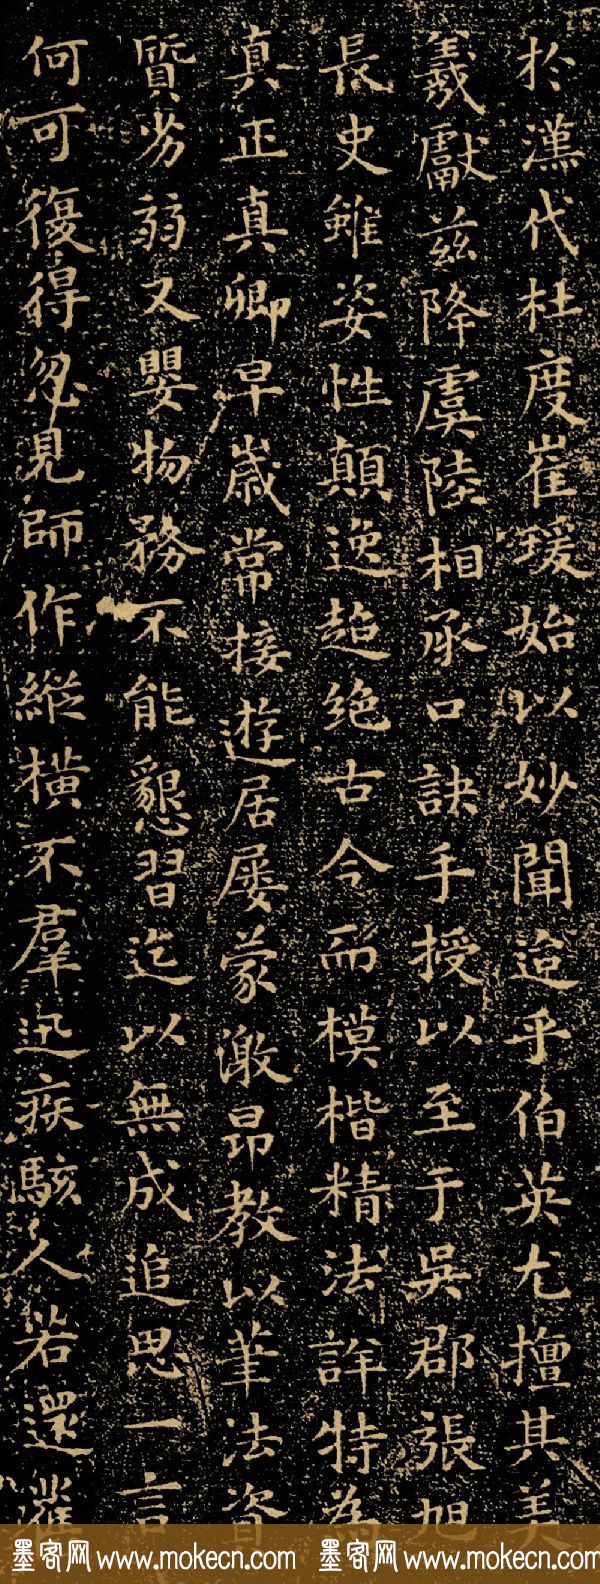 於漢代杜度崔瑗始以妙聞迨乎伯英尤擅其美
羲獻茲降虞陸相承口訣手授以至于吳郡張旭
長史雖姿性顛逸超絕古今而模楷精法詳特為
真正真卿早歲常接遊居屢蒙激昂教以筆法資
質劣弱又嬰物務不能懇習迄以無成追思一言
何可復得忽見師作縱橫不羣迅疾駭人若還舊
墨客网 www.mokecn.com 墨客网 www.mokecn.com